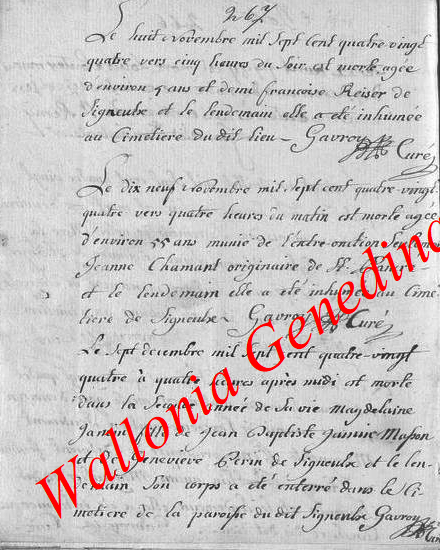 267
Le huit Novembre mil Sept Cent quatre vingt
quatre vers cinq heures du Soir est morte agée
d'environ 5 ans et demi francoise Reiser de
Signeulx et le lendemain elle a été inhumée
au Cimetiere du dit lieu - Gavroy
Curé
Le dix neuf Novembre mil Sept cent quatre-vingt
quatre vers quatre heures du matin est morte agée
d'environ 55 ans munie de l'extre-onction Seulement
Jeanne Chamant originaire de St.
et le lendemain elle a été inhumée au Cime
tiere de Signeulx - Gavroy Curé
Le Sept decembre mil Sept cent quatre-vingt
quatre à quatre heures après midi est morte
dans la année de Sa vie Magdelaine
Janin fille de Jean Baptiste Janin Masson
et de Genevieve Perin de Signeulx et le len-
demain Son corps a été enterré dans le Ci-
metiere de la paroisse du dit Signeulx Gavroy
Curé
Wallonia Genedino